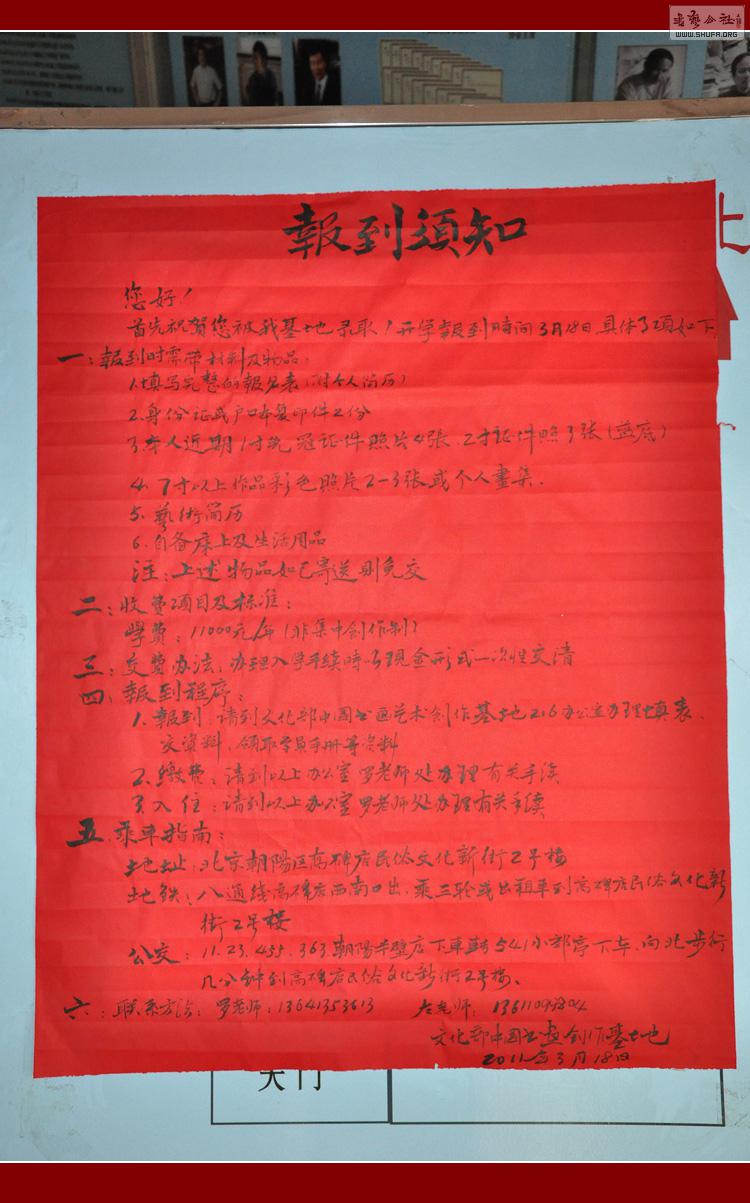 书艺公社
WWW.SHUFA.ORG
北
報到須知
您好！
首先祝贺您被我基地录取！开学報到時间3月18日，具体事项如下
一：報到时需带材料及物品：
1.填写完整的報名表（附个人简历）
2.身份证或户口本复印件2份
3.本人近期1寸免冠证件照片4張，2寸证件照3张（蓝底）
4.7寸以上作品彩色照片2-3张或个人畫集.
5.藝術简历
6.自备床上及生活用品
注：上述物品如已寄送则免交
二：收费项目及标准：
學費：11000元/年（非集中创作制）
三：交费办法：办理入学手续時以现金形式一次性交清
四：報到程序：
1.報到：请到文化部中國书画艺术创作基地216办公室办理填表、
交資料，领取学員手册等资料
2.缴费：请到以上办公室罗老师处办理有关手续
3.入住：请到以上办公室罗老师处办理有关手续
五.乘车指南：
地址：北京朝陽区高碑店民俗文化新街2号楼
地铁：八通线高碑店西南口出，乘三轮或出租車到高碑店民俗文化新
街2号楼
公交：11.23.455.363朝陽半壁店下車转541小郊亭下车，向北步行
几分钟到高碑店民俗文化新街2号楼、
六：联系方法：罗老师：13641353613 老师：
文化部中國书画创作基地
2011年3月18日